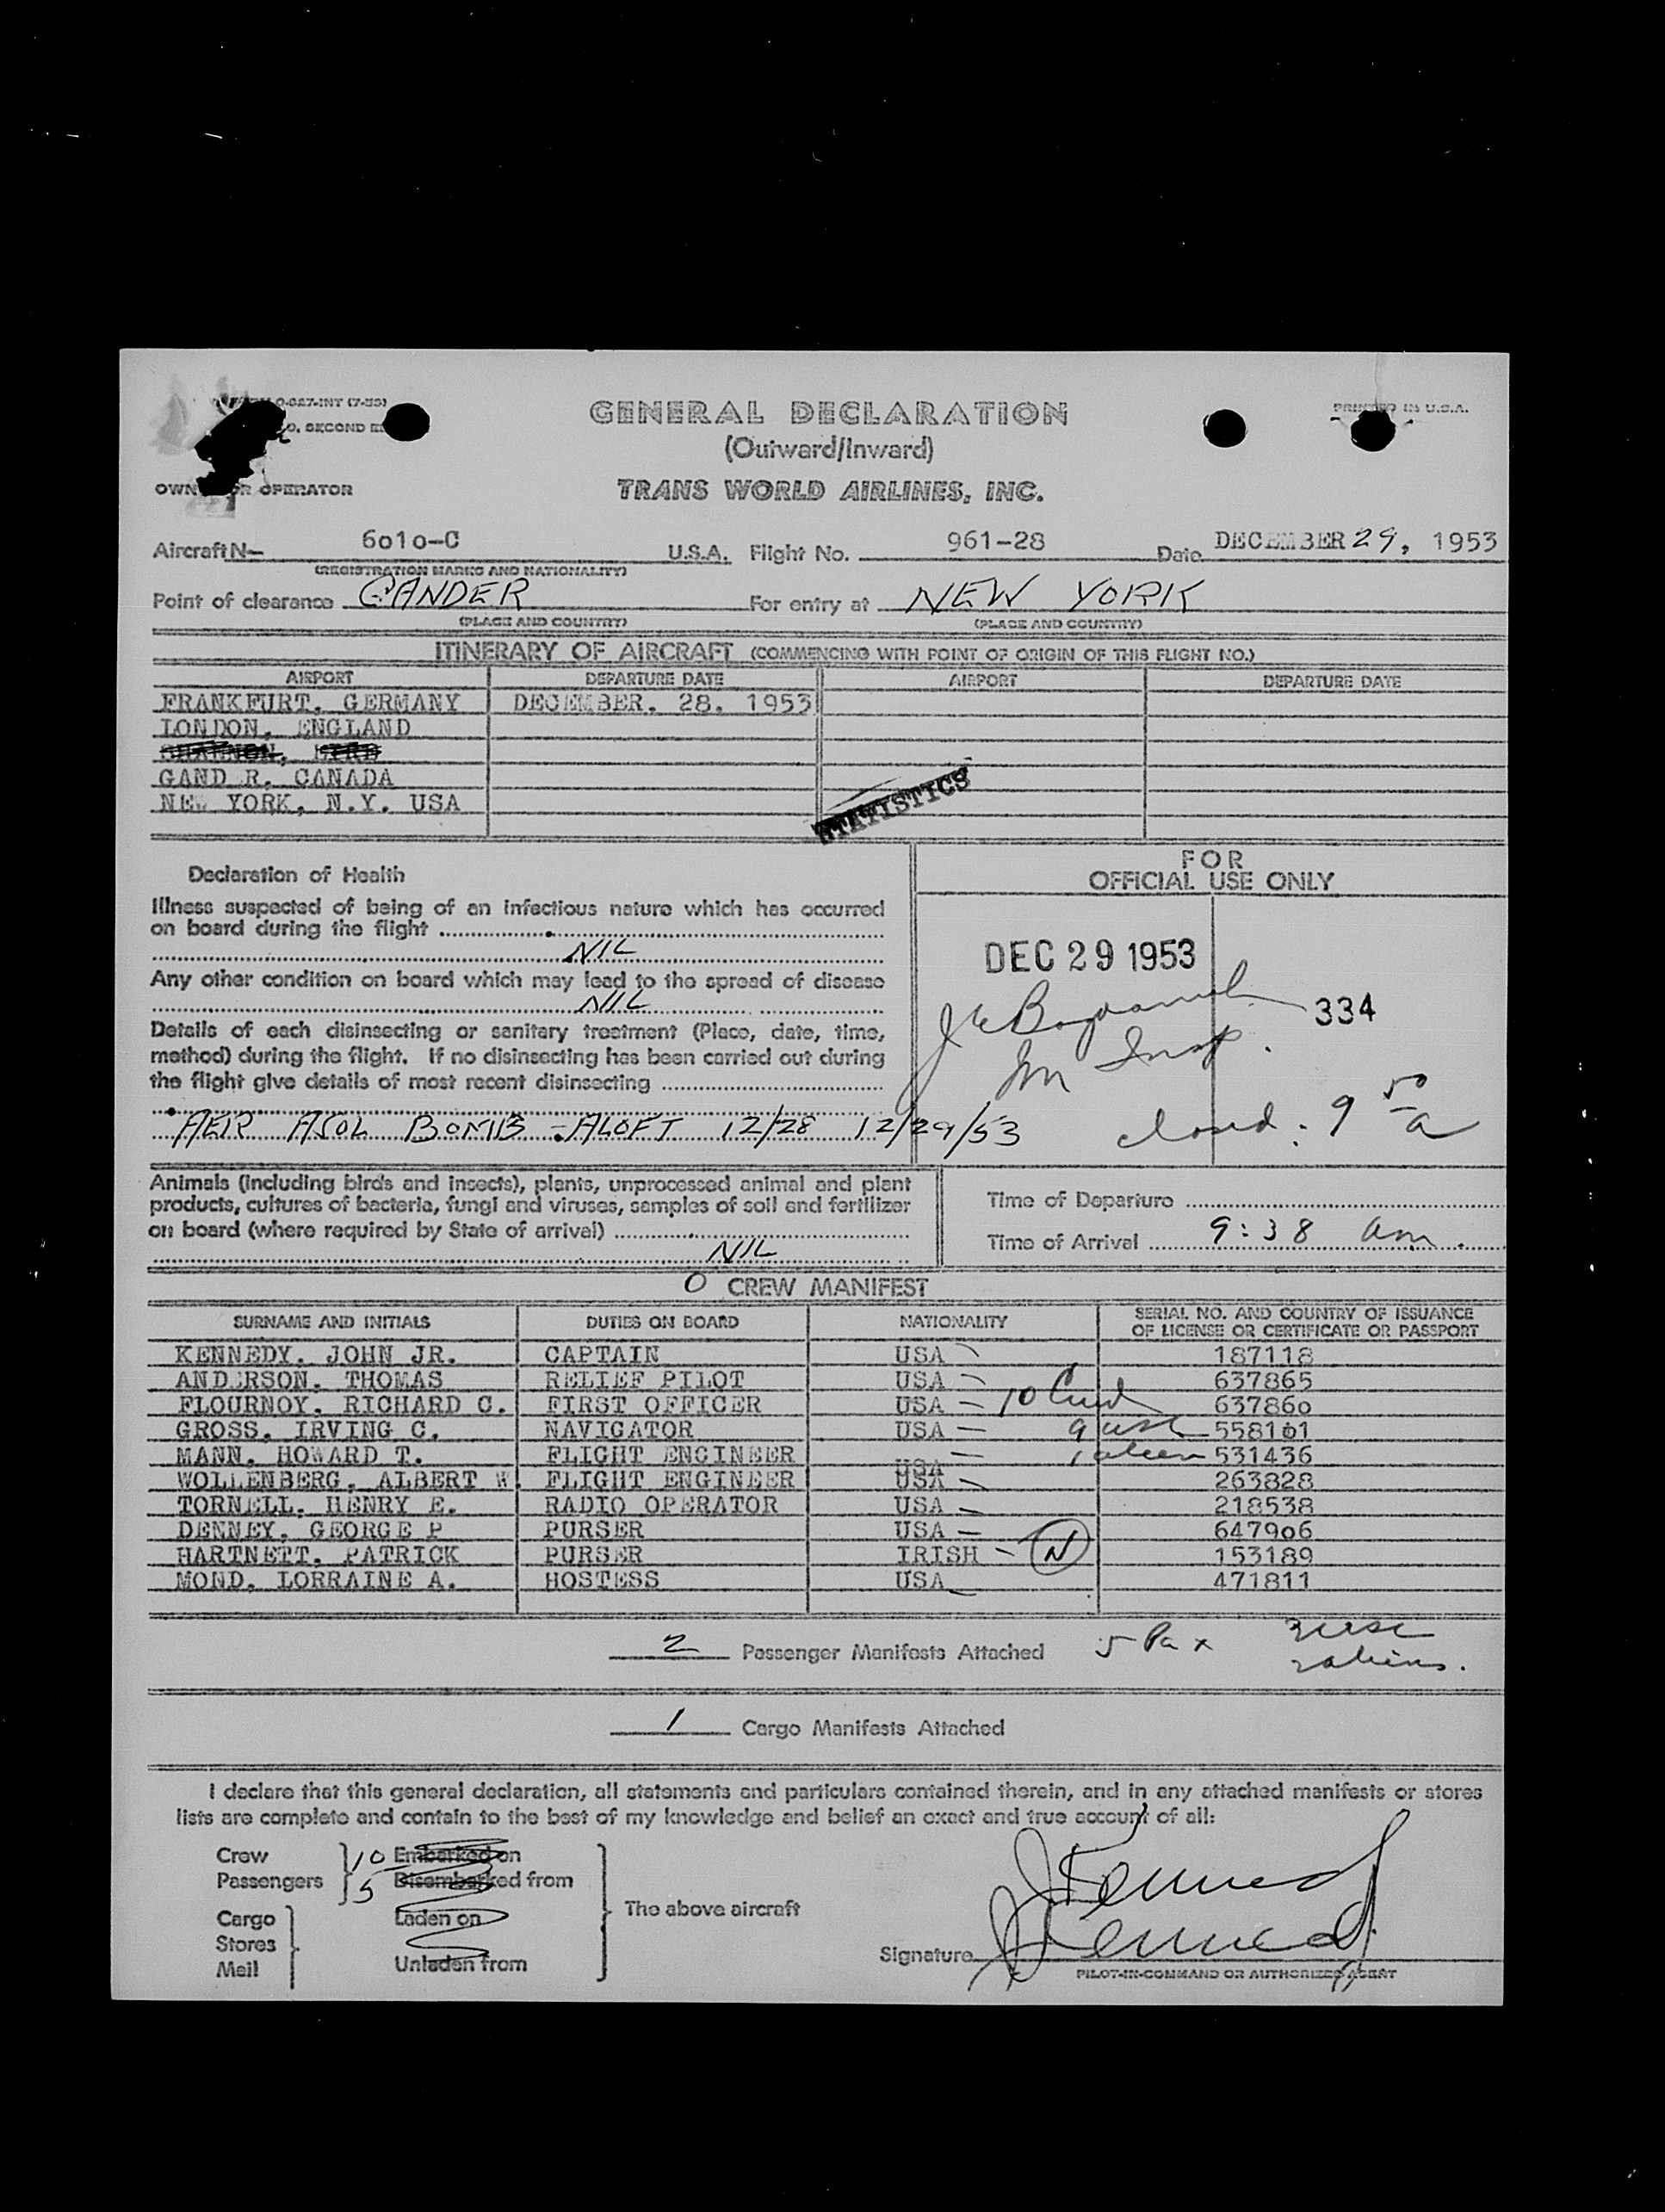 O-GA7-INT (7-53)
SECOND
GENERAL DECLARATION
PRINTED IN U.S.A.
(Outward/Inward)
OWNER OR OPERATOR
TRANS WORLD AIRLINES, INC.
Aircraft N- 6010-C U.S.A. Flight No. 961-28 Date DECEMBER 29, 1953
(REGISTRATION MARKS AND NATIONALITY)
Point of clearance GANDER For entry at NEW YORK
(PLACE AND COUNTRY) (PLACE AND COUNTRY)
ITINERARY OF AIRCRAFT (COMMENCING WITH POINT OF ORIGIN OF THIS FLIGHT NO.)
AIRPORT DEPARTURE DATE AIRPORT DEPARTURE DATE
FRANKFURT. GERMANY DECEMBER. 28. 1953
LONDON, ENGLAND
SHANNON, EIRE
GAND R, CANADA
NEW YORK, N.Y. USA
STATISTICS
Declaration of Health
Illness suspected of being of an infectious nature which has occurred
on board during the flight
NIL
Any other condition on board which may lead to the spread of disease
NIL
Details of each disinsecting or sanitary treatment (Place, date, time,
method) during the flight. If no disinsecting has been carried out during
the flight give details of most recent disinsecting
AER ASOL BOMB - ALOFT 12/28 12/29/53
FOR
OFFICIAL USE ONLY
DEC 29 1953
334
Im Insp.
closed: 9 50 a
Animals (including birds and insects), plants, unprocessed animal and plant
products, cultures of bacteria, fungi and viruses, samples of soil and fertilizer
on board (where required by State of arrival)
NIL
Time of Departure
Time of Arrival 9:38 am.
O CREW MANIFEST
SURNAME AND INITIALS DUTIES ON BOARD NATIONALITY SERIAL NO. AND COUNTRY OF ISSUANCE
OF LICENSE OR CERTIFICATE OR PASSPORT
KENNEDY. JOHN JR. CAPTAIN USA 187118
ANDERSON. THOMAS RELIEF PILOT USA 637865
FLOURNOY. RICHARD C. FIRST OFFICER USA 10 637860
GROSS. IRVING C. NAVIGATOR USA 9 usc 558161
MANN. HOWARD T. FLIGHT ENGINEER USA 1 alien 531436
WOLLENBERG, ALBERT W. FLIGHT ENGINEER USA 263828
TORNELL. HENRY E. RADIO OPERATOR USA 218538
DENNEY, GEORGE P PURSER USA 647906
HARTNETT. PATRICK PURSER IRISH N 153189
MOND. LORRAINE A. HOSTESS USA 471811
2 Passenger Manifests Attached 5 Pax 3 usc
2 aliens.
1 Cargo Manifests Attached
I declare that this general declaration, all statements and particulars contained therein, and in any attached manifests or stores
lists are complete and contain to the best of my knowledge and belief an exact and true account of all:
Crew 10 Embarked on
Passengers 5 Disembarked from
Cargo Laden on The above aircraft
Stores
Mail Unladen from
J Kennedy
Signature J Kennedy
PILOT-IN-COMMAND OR AUTHORIZED AGENT